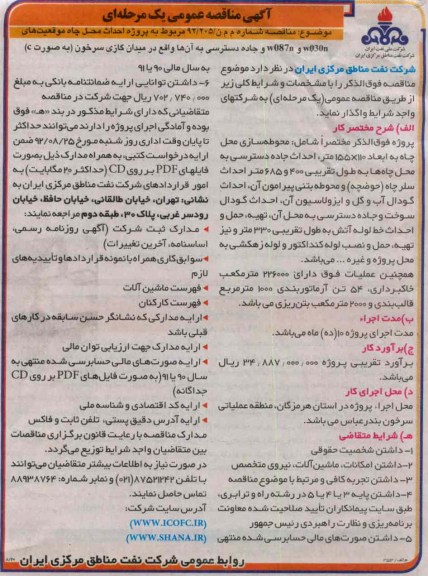 آگهی مناقصه عمومی یک مرحله‌ای
موضوع: مناقصه شماره م م ن/۹۲/۲۰۵ مربوط به پروژه احداث محل چاه موقعیت‌های
w030n و w087n و جاده دسترسی به آن‌ها واقع در میدان گازی سرخون (به صورت c)
شرکت ملی نفت ایران
شرکت نفت مناطق مرکزی ایران
شرکت نفت مناطق مرکزی ایران در نظر دارد موضوع
مناقصه فوق‌الذکر را با مشخصات و شرایط کلی زیر
از طریق مناقصه عمومی (یک مرحله‌ای) به شرکتهای
واجد شرایط واگذار نماید.
الف) شرح مختصر کار
پروژه فوق‌الذکر مختصراً شامل: محوطه‌سازی محل
چاه به ابعاد ۱۱۰×۱۵۵ متر، احداث جاده دسترسی به
محل چاه‌ها به طول تقریبی ۴۰۰ و ۶۸۵ متر احداث
سلر چاه (حوضچه) و محوطه بتنی پیرامون آن، احداث
گودال آب و گل و ایزولاسیون آن، احداث گودال
سوخت و جاده دسترسی به محل آن، تهیه، حمل و
احداث خط لوله آتش به طول تقریبی ۳۳۰ متر و نیز
تهیه، حمل و نصب لوله کنداکتور و لوله زهکشی به
محل پروژه و غیره ... می‌باشد.
همچنین عملیات فوق دارای ۲۲۶۰۰۰ مترمکعب
خاکبرداری، ۵۴ تن آرماتوربندی ۱۰۰۰ مترمربع
قالب‌بندی و ۲۰۰۰ مترمکعب بتن‌ریزی می باشد.
ب) مدت اجراء
مدت اجرای پروژه ۱۰ (ده) ماه می‌باشد.
ج) برآورد کار
برآورد تقریبی پروژه ۳۴,۸۸۷,۰۰۰,۰۰۰ ریال
می‌باشد.
د) محل اجرای کار
محل اجراء، پروژه در استان هرمزگان، منطقه عملیاتی
سرخون بندرعباس می باشد.
هـ) شرایط متقاضی
۱- داشتن شخصیت حقوقی
۲- داشتن امکانات، ماشین‌آلات، نیروی متخصص
۳- داشتن تجربه کافی و مرتبط با موضوع مناقصه
۴- داشتن پایه ۳ یا ۴ یا ۵ در رشته راه و ترابری،
طبق سایت پیمانکاران تأیید صلاحیت شده معاونت
برنامه‌ریزی و نظارت راهبردی رئیس جمهور
۵- داشتن صورت‌های مالی حسابرسی‌شده منتهی
به سال مالی ۹۰ یا ۹۱
۶- داشتن توانایی ارایه ضمانتنامه بانکی به مبلغ
۷۰۲,۷۴۰,۰۰۰ ریال جهت شرکت در مناقصه
متقاضیانی که دارای شرایط مذکور در بند «هـ» فوق
بوده و آمادگی اجرای پروژه را دارند می‌توانند حداکثر
تا پایان وقت اداری روز شنبه مورخ ۹۲/۰۸/۲۵ ضمن
ارایه درخواست کتبی، به همراه مدارک ذیل بصورت
فایلهای PDF بر روی CD (حداکثر ۲۰ مگابایت) به
امور قراردادهای شرکت نفت مناطق مرکزی ایران به
نشانی: تهران، خیابان طالقانی، خیابان حافظ، خیابان
رودسر غربی، پلاک ۳۰، طبقه دوم مراجعه نمایند:
مدارک ثبت شرکت (آگهی روزنامه رسمی،
اساسنامه، آخرین تغییرات)
سوابق کاری همراه با نمونه قراردادها و تأییدیه‌های
لازم
فهرست ماشین آلات
فهرست کارکنان
ارایه مدارکی که نشانگر حسن سابقه در کارهای
قبلی باشد
ارایه مدارک جهت ارزیابی توان مالی
ارایه صورت‌های مالی حسابرسی شده منتهی به
سال ۹۰ یا ۹۱ (به صورت فایل‌های PDF بر روی CD
جداگانه)
ارایه کد اقتصادی و شناسه ملی
ارایه آدرس دقیق پستی، تلفن ثابت و فاکس
مدارک مناقصه با رعایت قانون برگزاری مناقصات
بین متقاضیان واجد شرایط توزیع می‌گردد.
در صورت نیاز به اطلاعات بیشتر متقاضیان می‌توانند
با تلفن ۸۷۵۲۱۲۴۲ (۰۲۱) و نمابر شماره: ۸۸۹۳۸۷۶۴
تماس حاصل نمایند.
آدرس سایت شرکت:
(WWW.ICOFC.IR)
(WWW.SHANA.IR)
روابط عمومی شرکت نفت مناطق مرکزی ایران